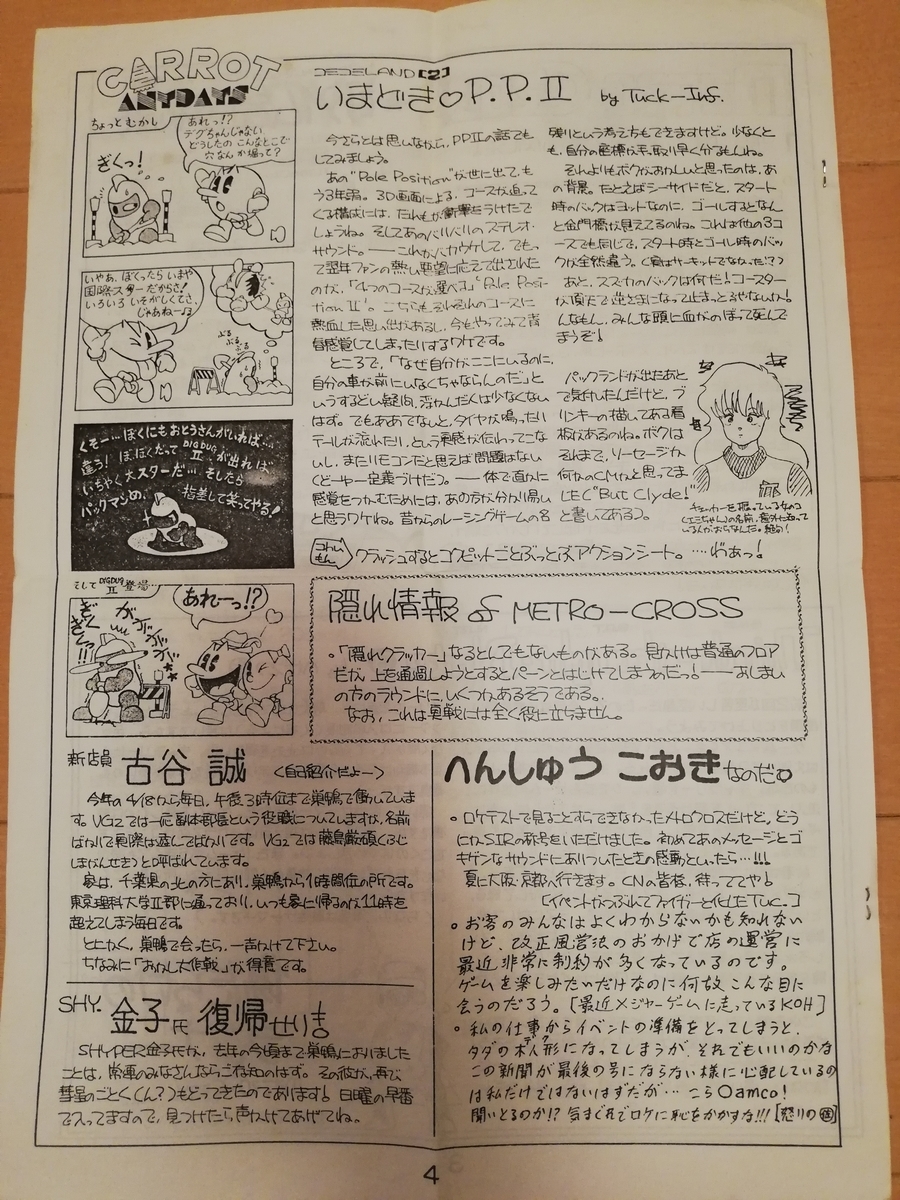 CARROT
ANYDAYS
ちょっとむかし
ぎくっ!
あれっ!?
デグちゃんじゃない
どうしたの こんなとこで
穴なんか堀って?
いやあ、ぼくったら いまや
国際スターだからさ!
いろいろ いそがしくてさ、
じゃあねーっ♪
ぶる
ぶるぶる
くそー…ぼくにもおとうさんがいれば…
違う! ぼ ぼくだって DIG DUG II が出れば
いちやく大スターだ… そしたら
パックマンめ、指差して笑ってやる!
そして DIG DUG II 登場…
ぎくぎくァ!!
ガガガガ
あれーっ!?
DEDELAND【2】
いまどき♡P.P.Ⅱ by Tuck-Inf.
今さらとは思いながら、PPⅡの話でも
してみましょう。
あの"Pole Position"が世に出て、も
う3年弱。3D画面による、コースが迫って
くる構成には、だれもが衝撃をうけたで
しょうね。そしてあのバリバリのステレオ・
サウンド。――これがバカウケして、でもっ
て翌年ファンの熱い要望に応えて出された
のが、「4つのコースが選べる」"Pole Posi-
tion Ⅱ"。こちらもそれぞれのコースに
熱血した思い出があるし、今もやってみて青
春感覚してしまったりするワケです。
ところで、「なぜ自分がここにいるのに、
自分の車が前にいなくちゃならんのだ」と
いうするどい疑問、浮かんだ人は少なくない
はず。でもああでないと、タイヤが鳴ったり
テールが流れたり、という実感が伝わってこな
いし、またリモコンだと思えば問題はない
(どーゆー定義づけだ)。――体で直かに
感覚をつかむためには、あの方が分かり易い
と思うワケね。昔からのレーシングゲームの名
残りという考え方もできますけど。少なくと
も、自分の座標が手っ取り早く分るもんね。
それよりもボクがおかしいと思ったのは、あ
の背景。たとえばシーサイドだと、スタート
時のバックはヨットなのに、ゴールするとなん
と金門橋が見えてるのね。これは他の3コ
ースでも同じで、スタート時とゴール時のバッ
クが全然違う。(実はサーキットでなかった!?)
あと、スズカのバックは何だ!コースター
が頂天で逆さまになって止まっとるやないか!
んなもん、みんな頭に血がのぼって死んで
まうぞ!
パックランドが出たあと
で気付いたんだけど、ブ
リンキーの描いてある看
板があるのね。ボクは
それまで、ソーセージか
何かのCMかと思ってま
した("But Clyde!"
と書いてある)。
チェッカーを振っている女のコ
(エミちゃん)の名前、意外と知って
いる人がおらなんだ。絶句!
コトレイもん クラッシュするとコクピットごとぶっとぶアクションシート。……わぁっ!
隠れ情報 of METRO-CROSS
・「隠れクラッカー」なるとしてもないものがある。見かけは普通のフロア
だが、上を通過しようとするとパーンとはじけてしまうのだっ!――おしまい
の方のラウンドに、いくつかあるそうである。
なお、これは実戦には全く役に立ちません。
新店員 古谷 誠 <自己紹介だよー>
今年の4/18から毎日、午後3時位まで巣鴨で働いていま
す。VG2では一応副本部長という役職についていますが、名前
ばかりで実際は遊んでばかりです。VG2では藤島厳頑(ふじ
しまがんせき)と呼ばれています。
家は、千葉県の北の方にあり、巣鴨から1時間位の所です。
東京理科大学Ⅱ部に通っており、いつも家に帰るのは11時を
超えてしまう毎日です。
とにかく、巣鴨で会ったら、一声かけて下さい。
ちなみに「おかし大作戦」が得意です。
SHY. 金子氏 復帰せり!
SHYPER金子氏が、去年の今頃まで巣鴨におりました
ことは、常連のみなさんならご存知のはず。その彼が、再び
彗星のごとく(くん?)もどってきたのであります! 日曜の早番
で入ってますので、見つけたら声かけてあげてね。
へんしゅう こおきなのだ♡
・ロケテストで見ることすらできなかったメトロクロスだけど、どう
にかSIRの称号をいただけました。初めてあのメッセージとゴ
キゲンなサウンドにありついたときの感動といったら…!!!
夏に大阪・京都へ行きます。CNの皆様、待っててや!
[イベントがつぶれてファイヤーと化したTuc.]
・お客のみんなはよくわからないかも知れない
けど、改正風営法のおかげで店の運営に
最近非常に制約が多くなっているのです。
ゲームを楽しみたいだけなのに何故こんな目に
会うのだろう。[最近メジャーゲームに走っているKOH]
・私の仕事からイベントの準備をとってしまうと、
タダの木人形になってしまうが、それでもいいのかな
この新聞が最後の号にならない様に心配しているの
は私だけではないはずだが… こらOamco!
聞いとるのか!? 気まぐれでロケに恥をかかすな!!! [怒りの
4